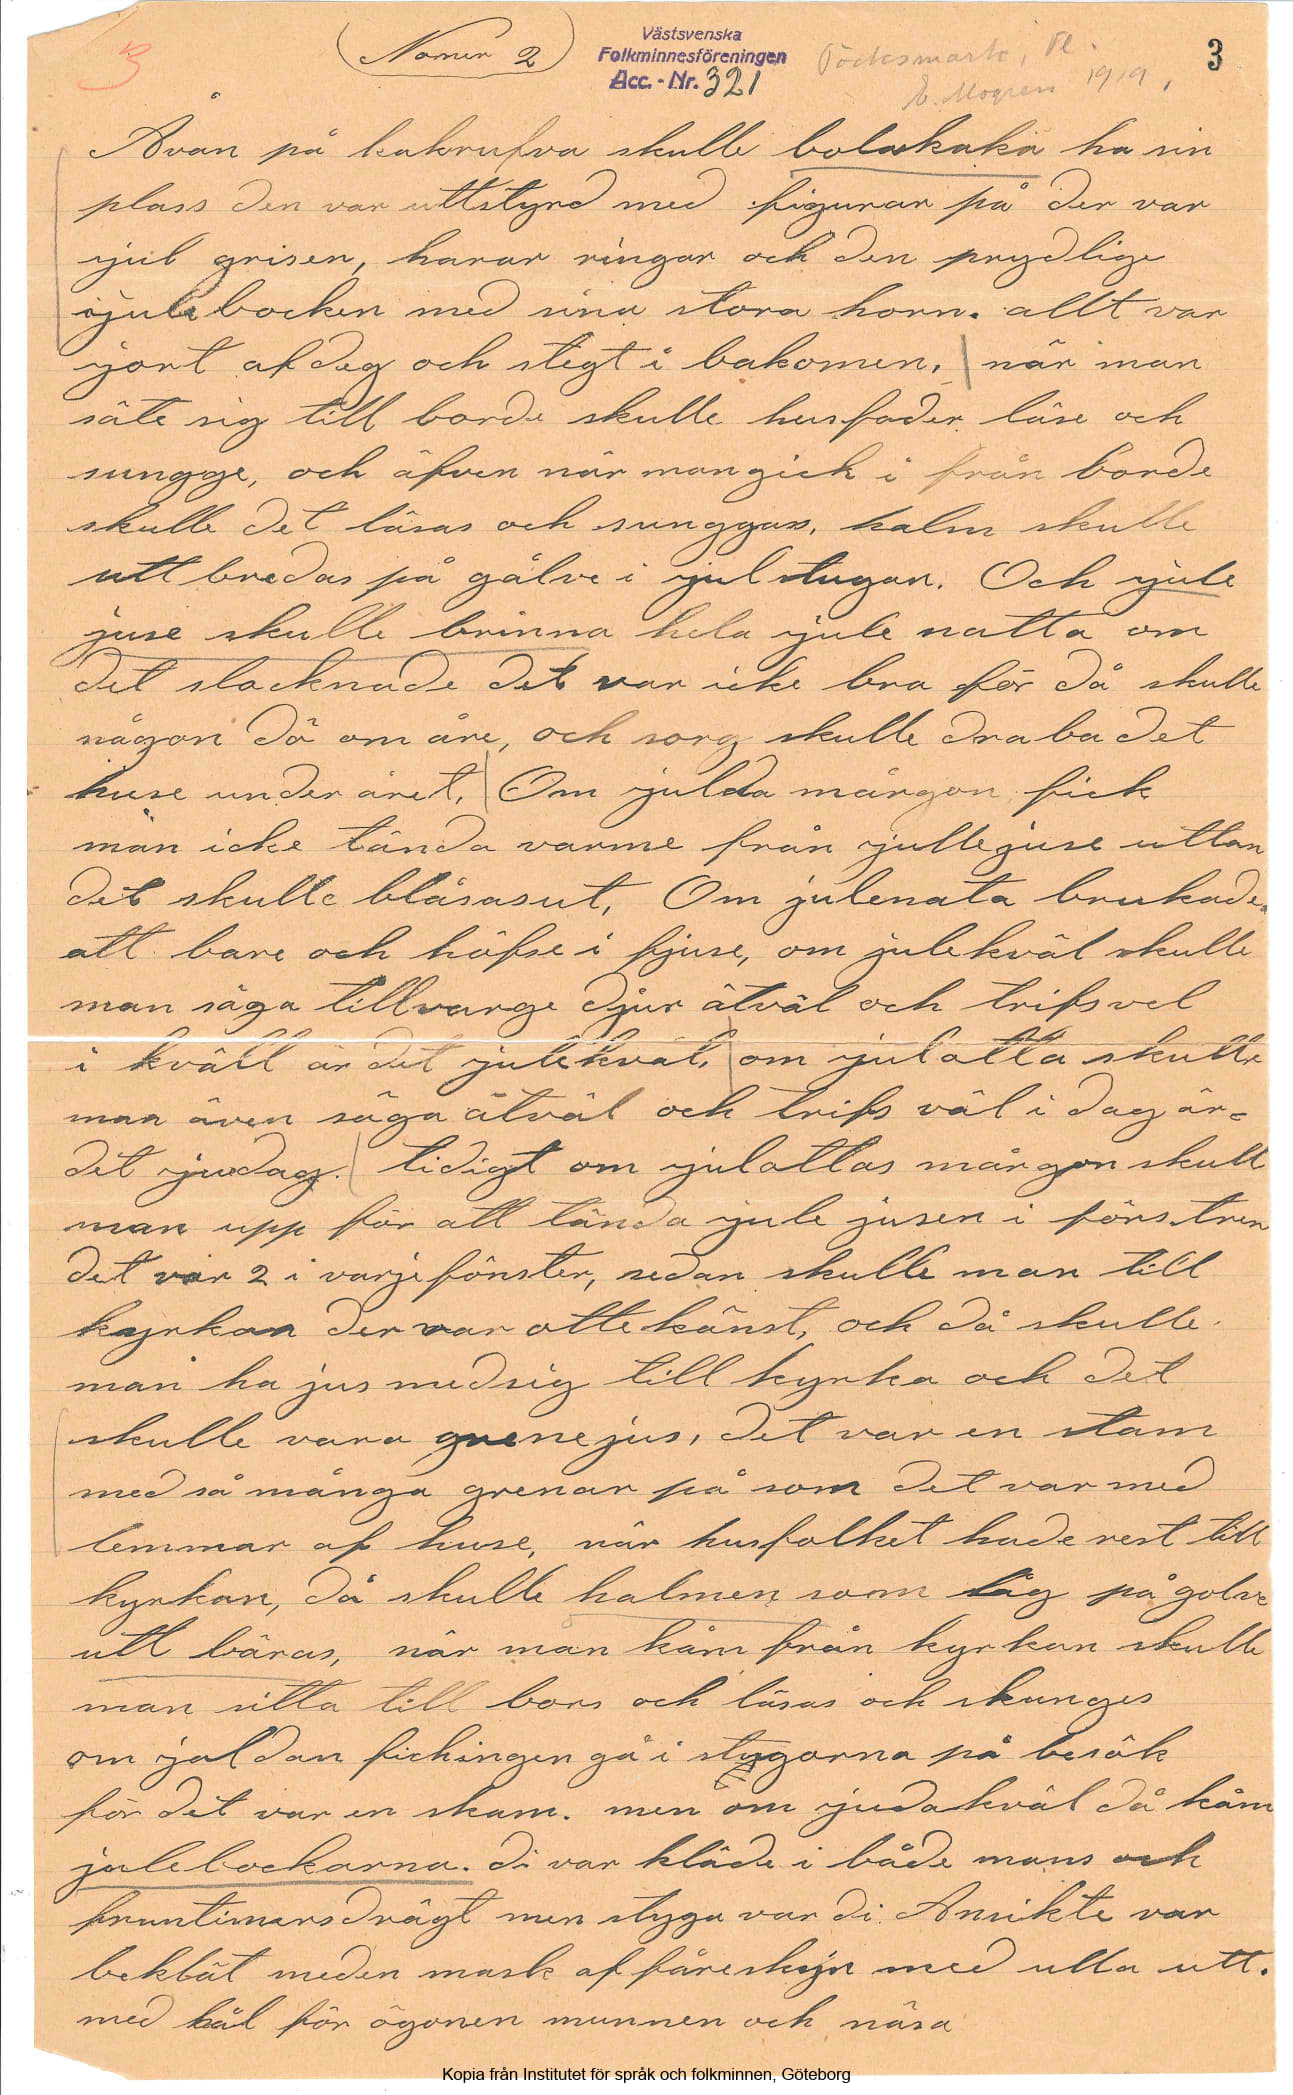 3
(Nomer 2)
Västsvenska
Folkminnesföreningen
Acc.-Nr. 321
Töcksmark, Vl.
E. Mogren 1919,
3
Åvan på kakrufva skulle bolakaka ha sin
plass den var uttstyrd med figurar på der var
jul grisen, harar ringar och den prydlige
julebocken med sina stora horn. allt var
gort af deg och stegt i bakomen, når man
säte sig till borde skulle husfader läse och
sungge, och äfven når man gick i från borde
skulle det läsas och sunggas, halm skulle
utt bredas på gålve i jul stugan. Och jule
juse skulle brinna hela jule natta om
det slocknade det var icke bra för då skulle
någon dö om åre, och sorg skulle draba det
huse under året, Om julda mårgon fick
man icke tända varme från jullejuse uttan
det skulle blåsasut, Om julenata brukade
att bare och höfse i fjuse, om julekväl skulle
man säga till varge djur ätväl och trifs vel
i kväll är det julekväl, om julotta skulle
man även säga ätväl och trifs väl i dag är=
det judag. tidigt om julottas mårgon skull
man upp för att tända jule jusen i förstren
det var 2 i varje fönster, sedan skulle man till
kyrkan der var ottekänst, och då skulle
man ha jus medsig till kyrka och det
skulle vara grenejus, det var en stam
med så många grenar på som det var med
lemmar af huse, när husfolket hade rest till
kyrkan, då skulle halmen som låg på golve
utt bäras, när man kåm från kyrkan skulle
man sitta till bors och läsas och skunges
om jul dan fickingen gå i stugorna på besök
för det var en skam. men om judakväl då kåm
julebockarna. di var klädde i både mans och
fruntimersdrägt men styga var di. Ansikte var
beklät meden mask af fåreskijn med ulla utt.
med hål för ögonen munnen och näsa
Kopia från Institutet för språk och folkminnen, Göteborg